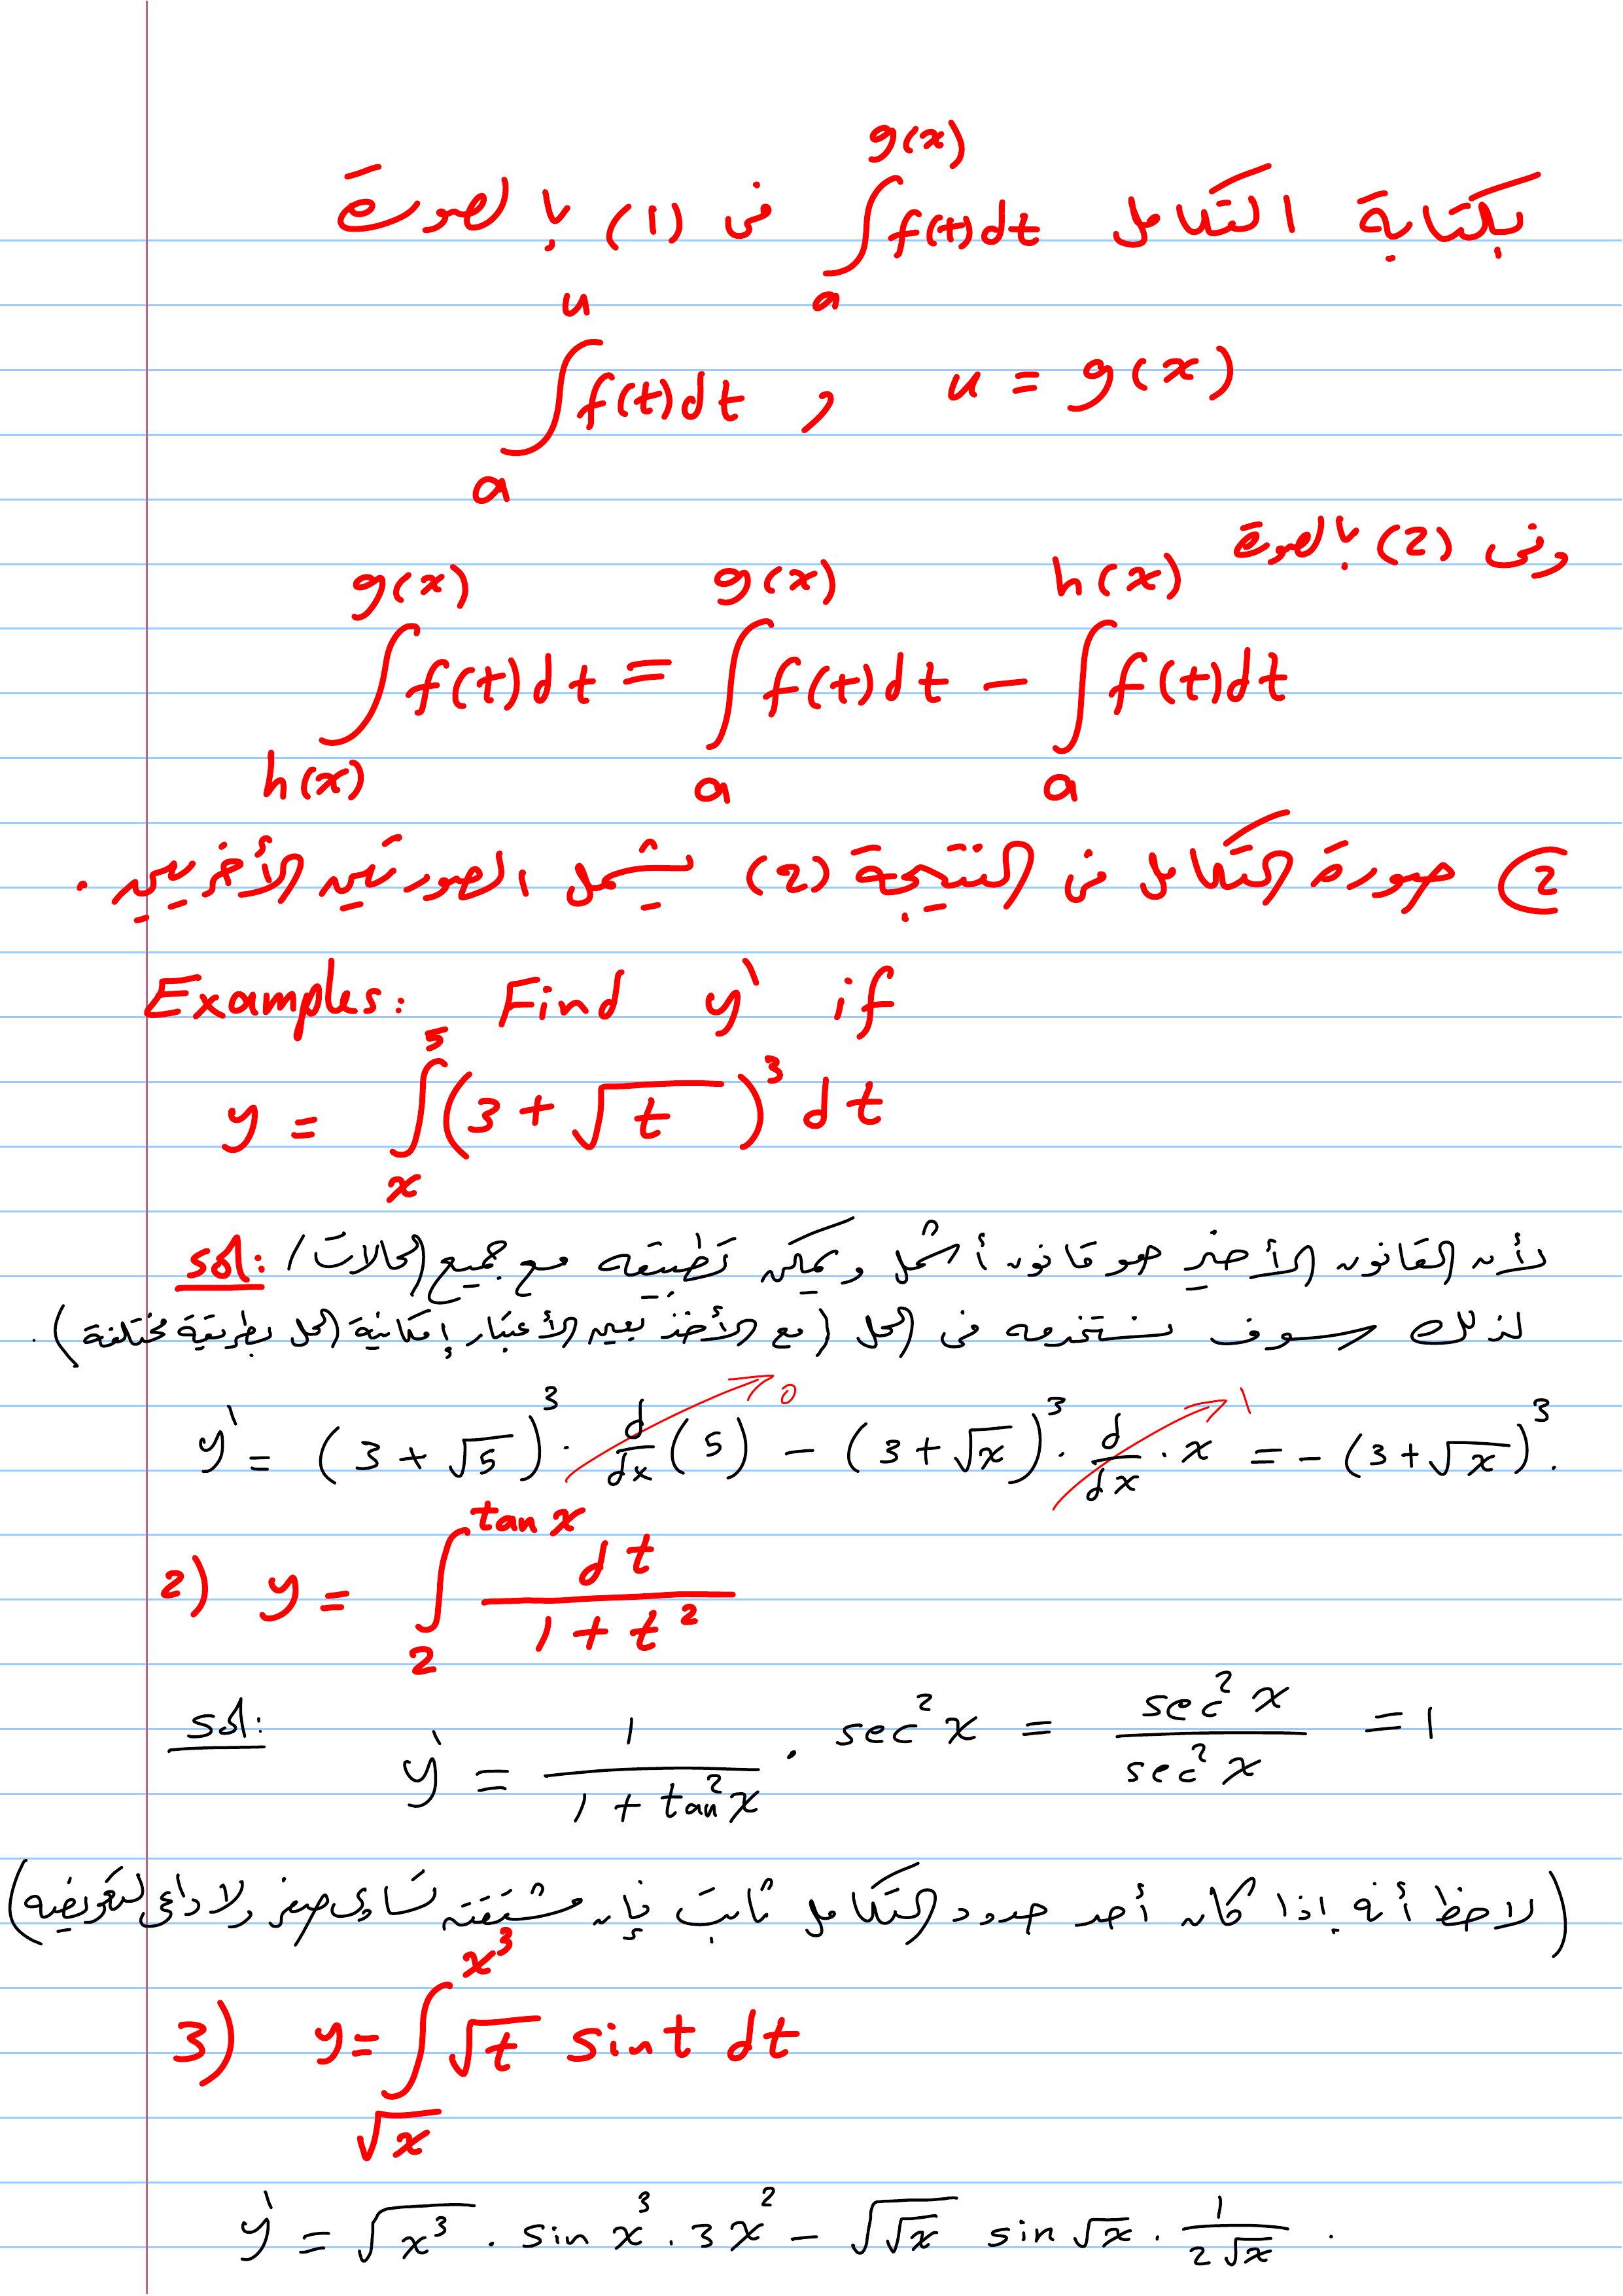 بكتابة التكامل $\int_{a}^{g(x)} f(t)dt$ فى (1) بالصورة
$\int_{a}^{u} f(t)dt$ , $u = g(x)$
وفى (2) بالصورة
$\int_{h(x)}^{g(x)} f(t)dt = \int_{a}^{g(x)} f(t)dt - \int_{a}^{h(x)} f(t)dt$
2) صورة التكامل فى النتيجة (2) يشمل الصورتين الأخريين .
Examples: Find y' if
$y = \int_{x}^{5} (3 + \sqrt{t})^3 dt$
sol: لأن القانون الأخير هو قانون أشمل ويمكن تطبيقه مع جميع الحالات)
لذلك سوف نستخدمه فى الحل (مع الأخذ بعين الأعتبار إمكانية الحل بطريقة مختلفة) .
$y' = (3 + \sqrt{5})^3 \cdot \frac{d}{dx}(5)^{\nearrow 0} - (3 + \sqrt{x})^3 \cdot \frac{d}{dx} \cdot x^{\nearrow 1} = -(3 + \sqrt{x})^3 .$
2) $y = \int_{2}^{\tan x} \frac{dt}{1 + t^2}$
sol: $y' = \frac{1}{1 + \tan^2 x} \cdot \sec^2 x = \frac{\sec^2 x}{\sec^2 x} = 1$
(لاحظ أنه إذا كان أحد حدود التكامل ثابت فإن مشتقته تساوى صفر ولا داعى لتعويضه)
3) $y = \int_{\sqrt{x}}^{x^3} \sqrt{t} \sin t \, dt$
$y' = \sqrt{x^3} \cdot \sin x^3 \cdot 3x^2 - \sqrt{\sqrt{x}} \sin \sqrt{x} \cdot \frac{1}{2\sqrt{x}} .$